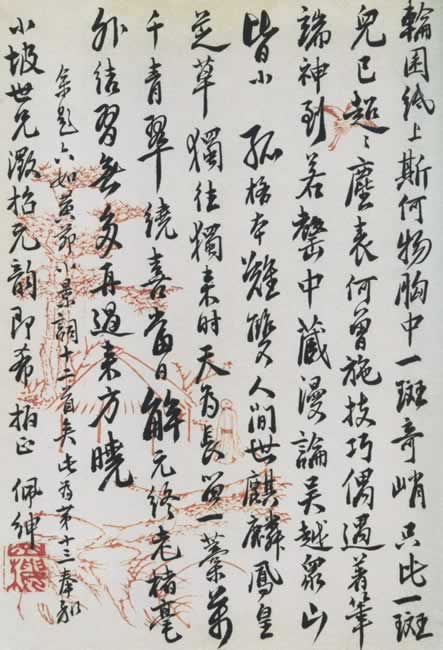 輪囷紙上斯何物胸中一斑奇峭只比一斑
兒已超〻塵表何曾施技巧偶遇著筆
端神到若罄中藏漫論吴越衆山
皆小 孤格本難雙人間世麒麟鳳皇
芝草獨往獨来时天為長留一藁萬
千青翠繞喜當日解元終老楮毫
外結習無多再過来方曉
余題六如黄茆小景詞十二首矣此為第十三奉和
小坡世兄徵招元韵即希拍正 佩紳